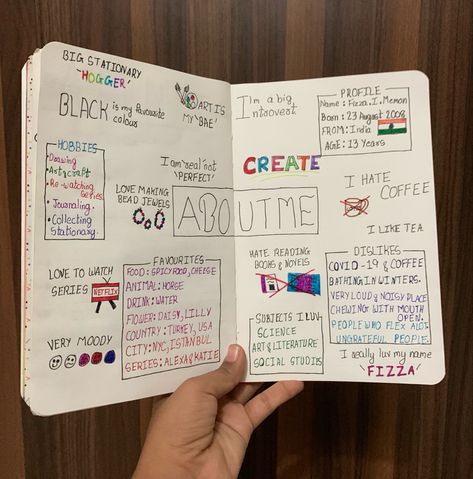 BIG STATIONARY
"HOGGER"
BLACK is my favourite
colour
ART IS
MY "BAE"
HOBBIES
Drawing
Art & craft
Re-watching
Series
Journaling.
Collecting
Stationary.
I am real not
"PERFECT"
LOVE MAKING
BEAD JEWELS
LOVE TO WATCH
SERIES
NETFLIX
VERY MOODY
FAVOURITES
FOOD: SPICY FOOD, CHEESE
ANIMAL: HORSE
DRINK: WATER
FLOWER: DAISY, LILLY
COUNTRY: TURKEY, USA
CITY: NYC, ISTANBUL
SERIES: ALEXA & KATIE
ABOUT ME
I'm a big
Introvert
PROFILE
Name: Fizza. I. Memon
Born: 23 August 2008
FROM: India
AGE: 13 Years
CREATE
I HATE
COFFEE
I LIKE TEA.
HATE READING
BOOKS & NOVELS
SUBJECTS I LUV
SCIENCE
ART & LITERATURE
SOCIAL STUDIES
DISLIKES
COVID-19 & COFFEE
BATHING IN WINTERS.
VERY LOUD & NOISY PLACE
CHEWING WITH MOUTH
OPEN.
PEOPLE WHO FLEX ALOT
UNGRATEFUL PEOPLE.
I really luv my name
"FIZZA"